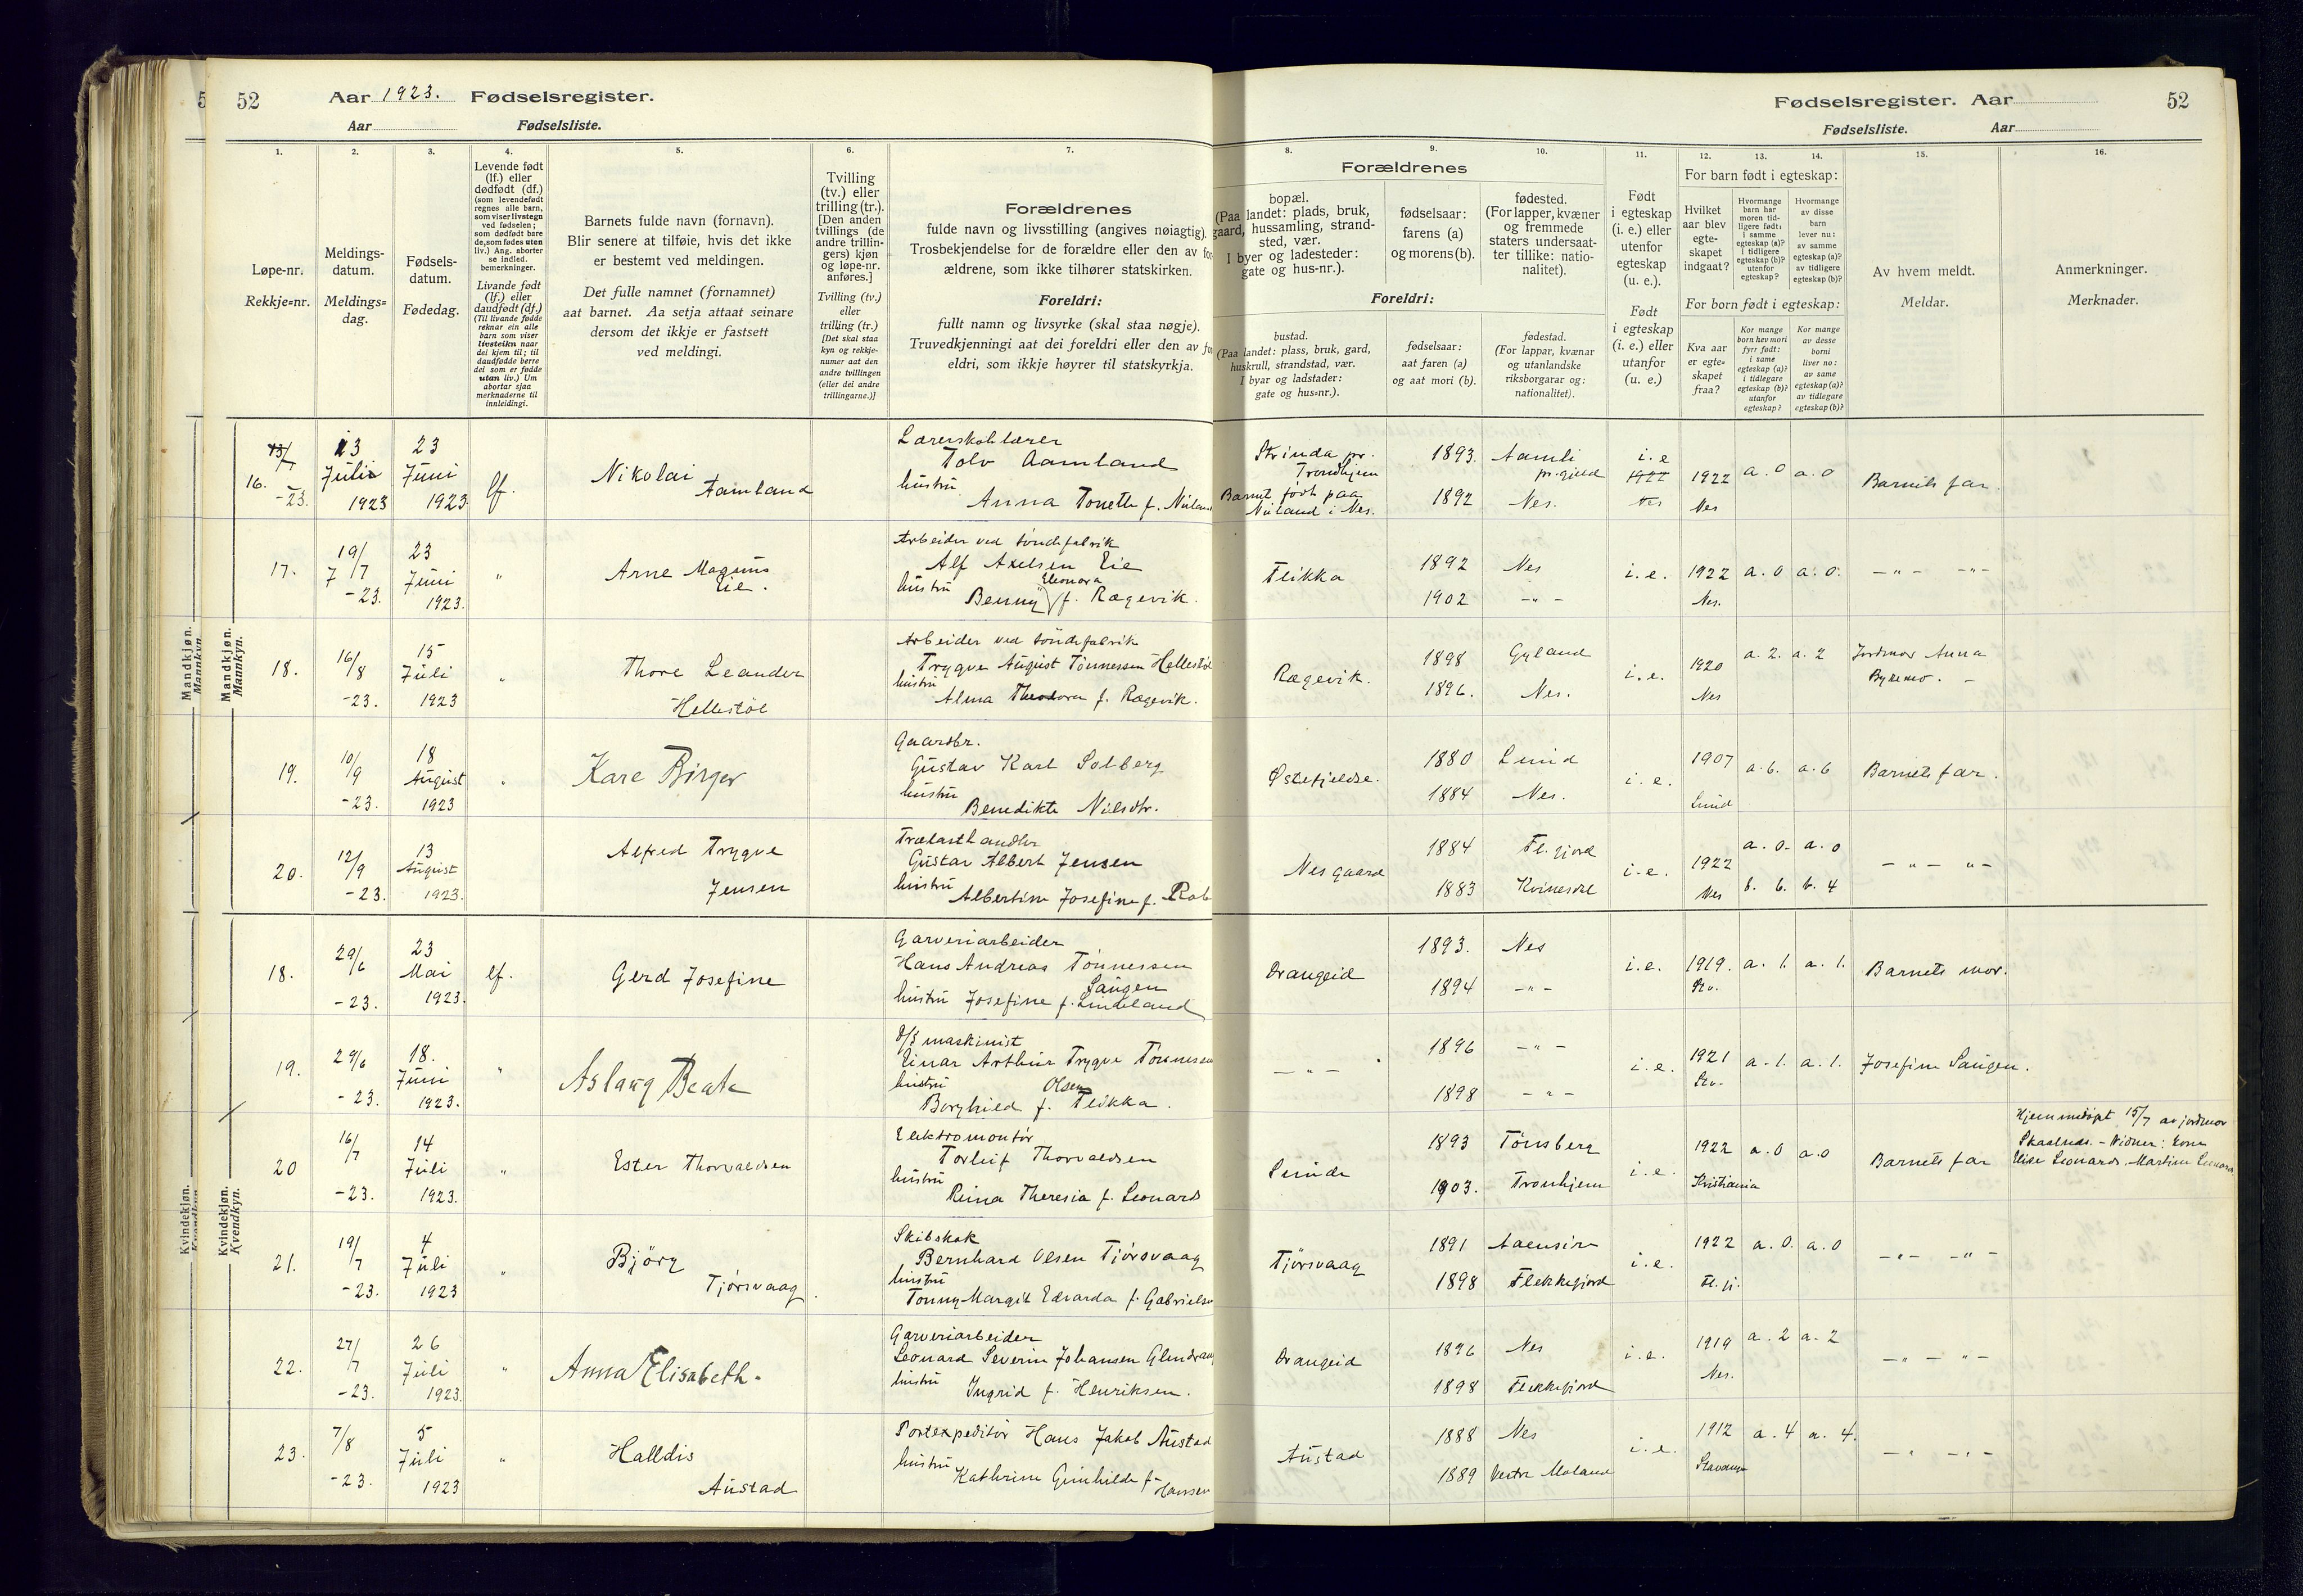 52
Aar 1923. Fødselsregister.
Aar Fødselsliste.
Fødselsregister. Aar
52
Fødselsliste. Aar
1. 2. 3. 4. 5. 6. 7. 8. 9. 10. 11. 12. 13. 14. 15. 16.
Løpe-nr.
Rekkje=nr.
Meldings-
datum.
Meldings=
dag.
Fødsels-
datum.
Fødedag.
Levende født
(lf.) eller
dødfødt (df.)
(som levendefødt
regnes alle barn,
som viser livstegn
ved fødselen;
som dødfødt bare
de, som fødes uten
liv.) Ang. aborter
se indled.
bemerkninger.
Livande født
(lf.) eller
daudfødt (df.)
(Til livande fødde
reknar ein alle
barn som viser
livsteikn naar
dei kjem til; til
daudfødde berre
dei som er fødde
utan liv.) Um
abortar sjaa
merknaderne til
innleidingi.
Barnets fulde navn (fornavn).
Blir senere at tilføie, hvis det ikke
er bestemt ved meldingen.
Det fulle namnet (fornamnet)
aat barnet. Aa setja attaat seinare
dersom det ikkje er fastsett
ved meldingi.
Tvilling
(tv.) eller
trilling (tr.).
[Den anden
tvillings (de
andre trillin-
gers) kjøn
og løpe-nr.
anføres.]
Tvilling (tv.)
eller
trilling (tr.)
[Det skal staa
kyn og rekkje-
numer aat den
andre tvillingen
(eller dei andre
trillingarne.)]
Forældrenes
fulde navn og livsstilling (angives nøiagtig).
Trosbekjendelse for de forældre eller den av for
ældrene, som ikke tilhører statskirken.
Foreldri:
fullt namn og livsyrke (skal staa nøgje).
Truvedkjenningi aat dei foreldri eller den av for
eldri, som ikkje høyrer til statskyrkja.
Forældrenes
bopæl.
(Paa landet: plads, bruk,
gaard, hussamling, strand-
sted, vær.
I byer og ladesteder:
gate og hus-nr.).
fødselsaar:
farens (a)
og morens (b).
fødested.
(For lapper, kvæner
og fremmede
staters undersaat-
ter tillike: natio-
nalitet).
Foreldri:
bustad.
(Paa landet: plass, bruk, gard,
huskrull, strandstad, vær.
I byar og ladstader:
gate og hus=nr.).
fødselsaar:
aat faren (a)
og aat mori (b).
fødestad.
(For lappar, kvænar
og utanlandske
riksborgarar og:
nationalitet).
Født
i egteskap
(i. e.) eller
utenfor
egteskap
(u. e.).
Født
i egteskap
(i. e.) eller
utanfor
(u. e.)
For barn født i egteskap:
Hvilket
aar blev
egte-
skapet
indgaat?
Hvormange
barn har
moren tid-
ligere født:
i samme
egteskap (a)?
i tidligere
egteskap (b)?
utenfor
egteskap?
Hvormange
av disse
barn
lever nu:
av samme
egteskap (a)?
av tidligere
egteskap (b)?
For born født i egteskap:
Kva aar
er egte=
skapet
fraa?
Kor mange
born hev mori
fyrr født:
i same
egteskap (a)?
i tidlegare
egteskap (b)?
utanfor
egteskap?
Kor mange
av desse
borni
liver no:
av same
egteskap (a)?
av tidlegare
egteskap (b)?
Av hvem meldt.
Meldar.
Anmerkninger.
Merknader.
Mandkjøn.
Mannkyn.
16. -23. 13 Juli 1923 23 Juni 1923 lf.
Nikolai
Aamland
Lærerskolelærer
Tolv Aamland
hustru
Anna Tonette f. Niland
Strinda pr.
Trondhjem
Barnet født paa
Niland i Nes.
1893. Aamli
pr.gjeld
1892 Nes.
i. e 1922 Nes a. 0 a. 0 Barnets far.
17. 19/7 -23. 23 Juni 1923. "
Arne Magnus
Eie.
Arbeider ved töndefabrik
Alf Axelsen Eie
hustru Eleonora
Benny f. Rægevik.
Flikka 1892 Nes
1902 -"-
i. e. 1922 Nes. a. 0 a. 0. -"- -"-
18. 16/8 -23. 15 Juli 1923 "
Thore Leander
Hellestöl
Arbeider ved töndefabrik
Trygve August Tönnessen Hellestöl
hustru
Alma Theodora f. Rægevik.
Rægevik. 1898 Gyland
1896. Nes.
i. e. 1920 Nes a. 2. a. 2 Jordmor Anna
Bykemo. -
19. 10/9 -23. 18 August 1923 "
Kare Birger
Gaardbr.
Gustav Karl Solberg
hustru
Benedikte Nilsdtr.
Østefjeldse. 1880 Lund
1884 Nes.
i. e. 1907 Lund a. 6. a. 6 Barnets far.
20. 12/9 -23. 13 August 1923.
Alfred Trygve
Jensen
Trælasthandler
Gustav Albert Jensen
hustru
Albertine Josefine f. Rob
Nesgaard 1884 Fl.gjord
1883 Kvinesdl
i. e. 1922 Nes a. 0. a. 0
b. 6. b. 4 -"- "-
Kvindekjøn.
Kvendkyn.
18. 29/6 -23. 23 Mai 1923. lf.
Gerd Josefine
Garveriarbeider
Hans Andreas Tönnessen
Saugen
hustru Josefine f. Lindeland
Drangeid 1893. Nes
1894 -"-
i. e. 1919. a. 1. a. 1. Barnets mor.
19. 29/6 -23. 18. Juni 1923. "
Aslaug Beate
D/S maskinist
Einar Arthur Trygve Tönnessen
hustru Olsen
Borghild f. Flikka.
-"- 1896 -"-
1898 -"-
i. e. 1921 a. 1. a. 1. Josefine Saugen.
20 16/7 -23. 14 Juli 1923. "
Ester Thorvaldsen
Elektromontör
Torleif Thorvaldsen
hustru
Reina Theresia f. Leonards
Lunde 1893 Tönsberg
1903. Tronhjem
i. e. 1922 Kristiania a. 0 a. 0 Barnets far
Hjemmedöpt 15/7 av jordmor
21. 19/7 -23. 4 Juli 1923 "
Björg
Tjörsvaag.
Skibskok
Bernhard Olsen Tjörsvaag
hustru
Tonny Margit Edvarda f. Gabrielsen
Tjörsvaag 1891 Aaensire
1898 Flekkefjord
i. e. 1922 Fl. fj. a. 0. a. 0 -"- -"-
22. 27/7 -23. 26 Juli 1923. "
Anna Elisabeth.
Garveriarbeider
Leonard Severin Johansen Glendrang
hustru
Ingrid f. Henriksen.
Drangeid 1896 Nes
1898 Flekkefjord
i. e. 1919 Nes. a. 2 a. 2 -"- "-
23. 7/8 -23. 5 Juli 1923 "
Halldis
Austad
Postexpeditör Hans Jakob Austad
hustru
Kathrine Gunhilde f. Hansen
Austad 1888 Nes
1889 Vestre Moland
i. e. 1912 Stavanger a. 4 a. 4. -"- -"-